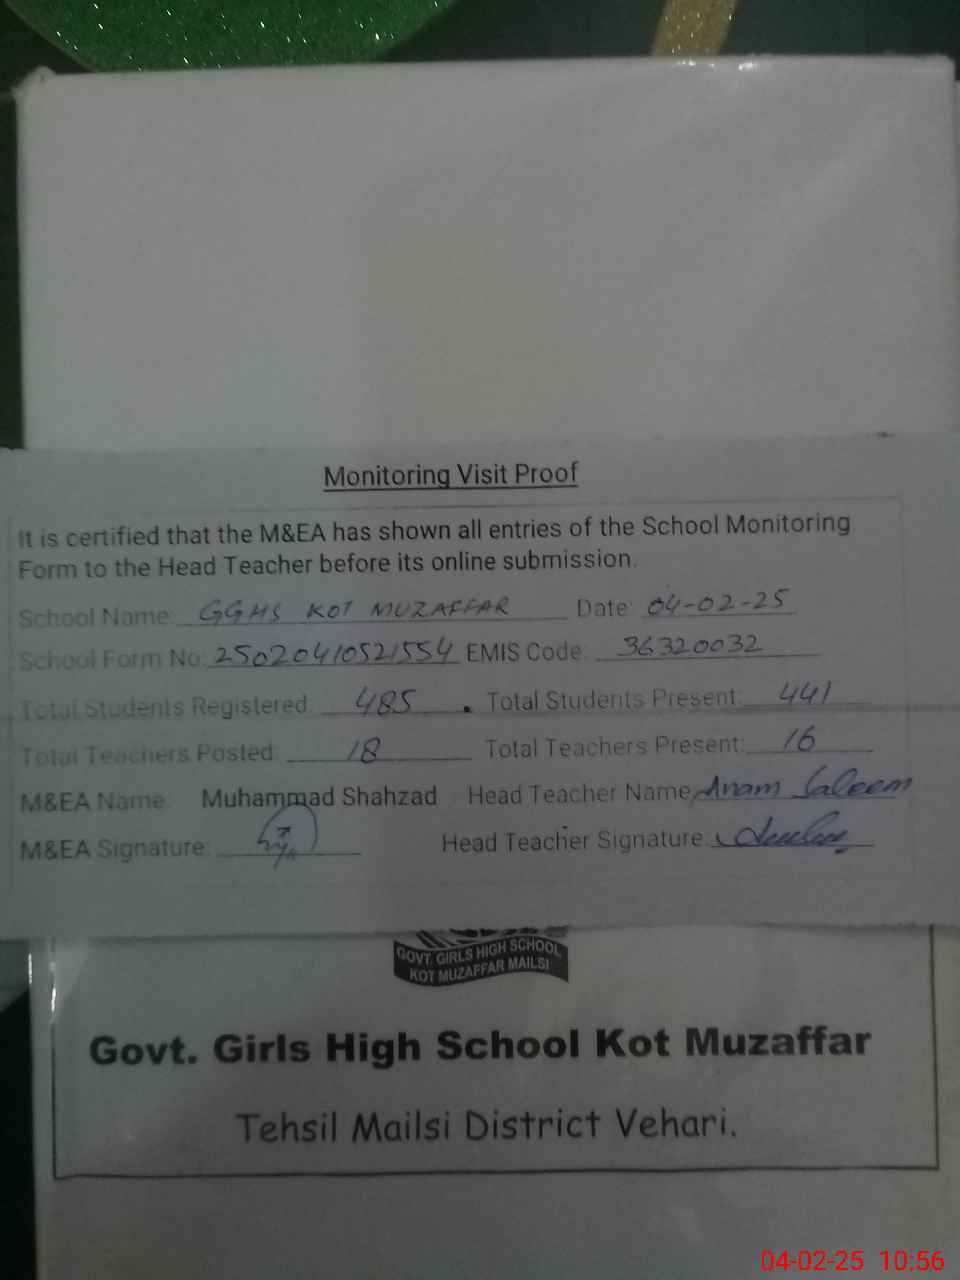 Monitoring Visit Proof
It is certified that the M&EA has shown all entries of the School Monitoring
Form to the Head Teacher before its online submission.
School Name: GGHS KOT MUZAFFAR Date: 04-02-25
School Form No: 25020410521554 EMIS Code: 36320032
Total Students Registered: 485 Total Students Present: 441
Total Teachers Posted: 18 Total Teachers Present: 16
M&EA Name: Muhammad Shahzad Head Teacher Name: Anam Saleem
M&EA Signature: Head Teacher Signature:
GOVT. GIRLS HIGH SCHOOL
KOT MUZAFFAR MAILSI
Govt. Girls High School Kot Muzaffar
Tehsil Mailsi District Vehari.
04-02-25 10:56